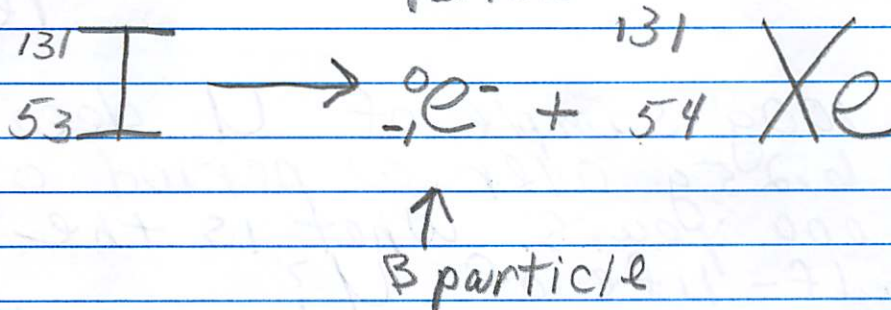 ¹³¹₅₃I → ⁰₋₁e⁻ + ¹³¹₅₄Xe
↑
B particle